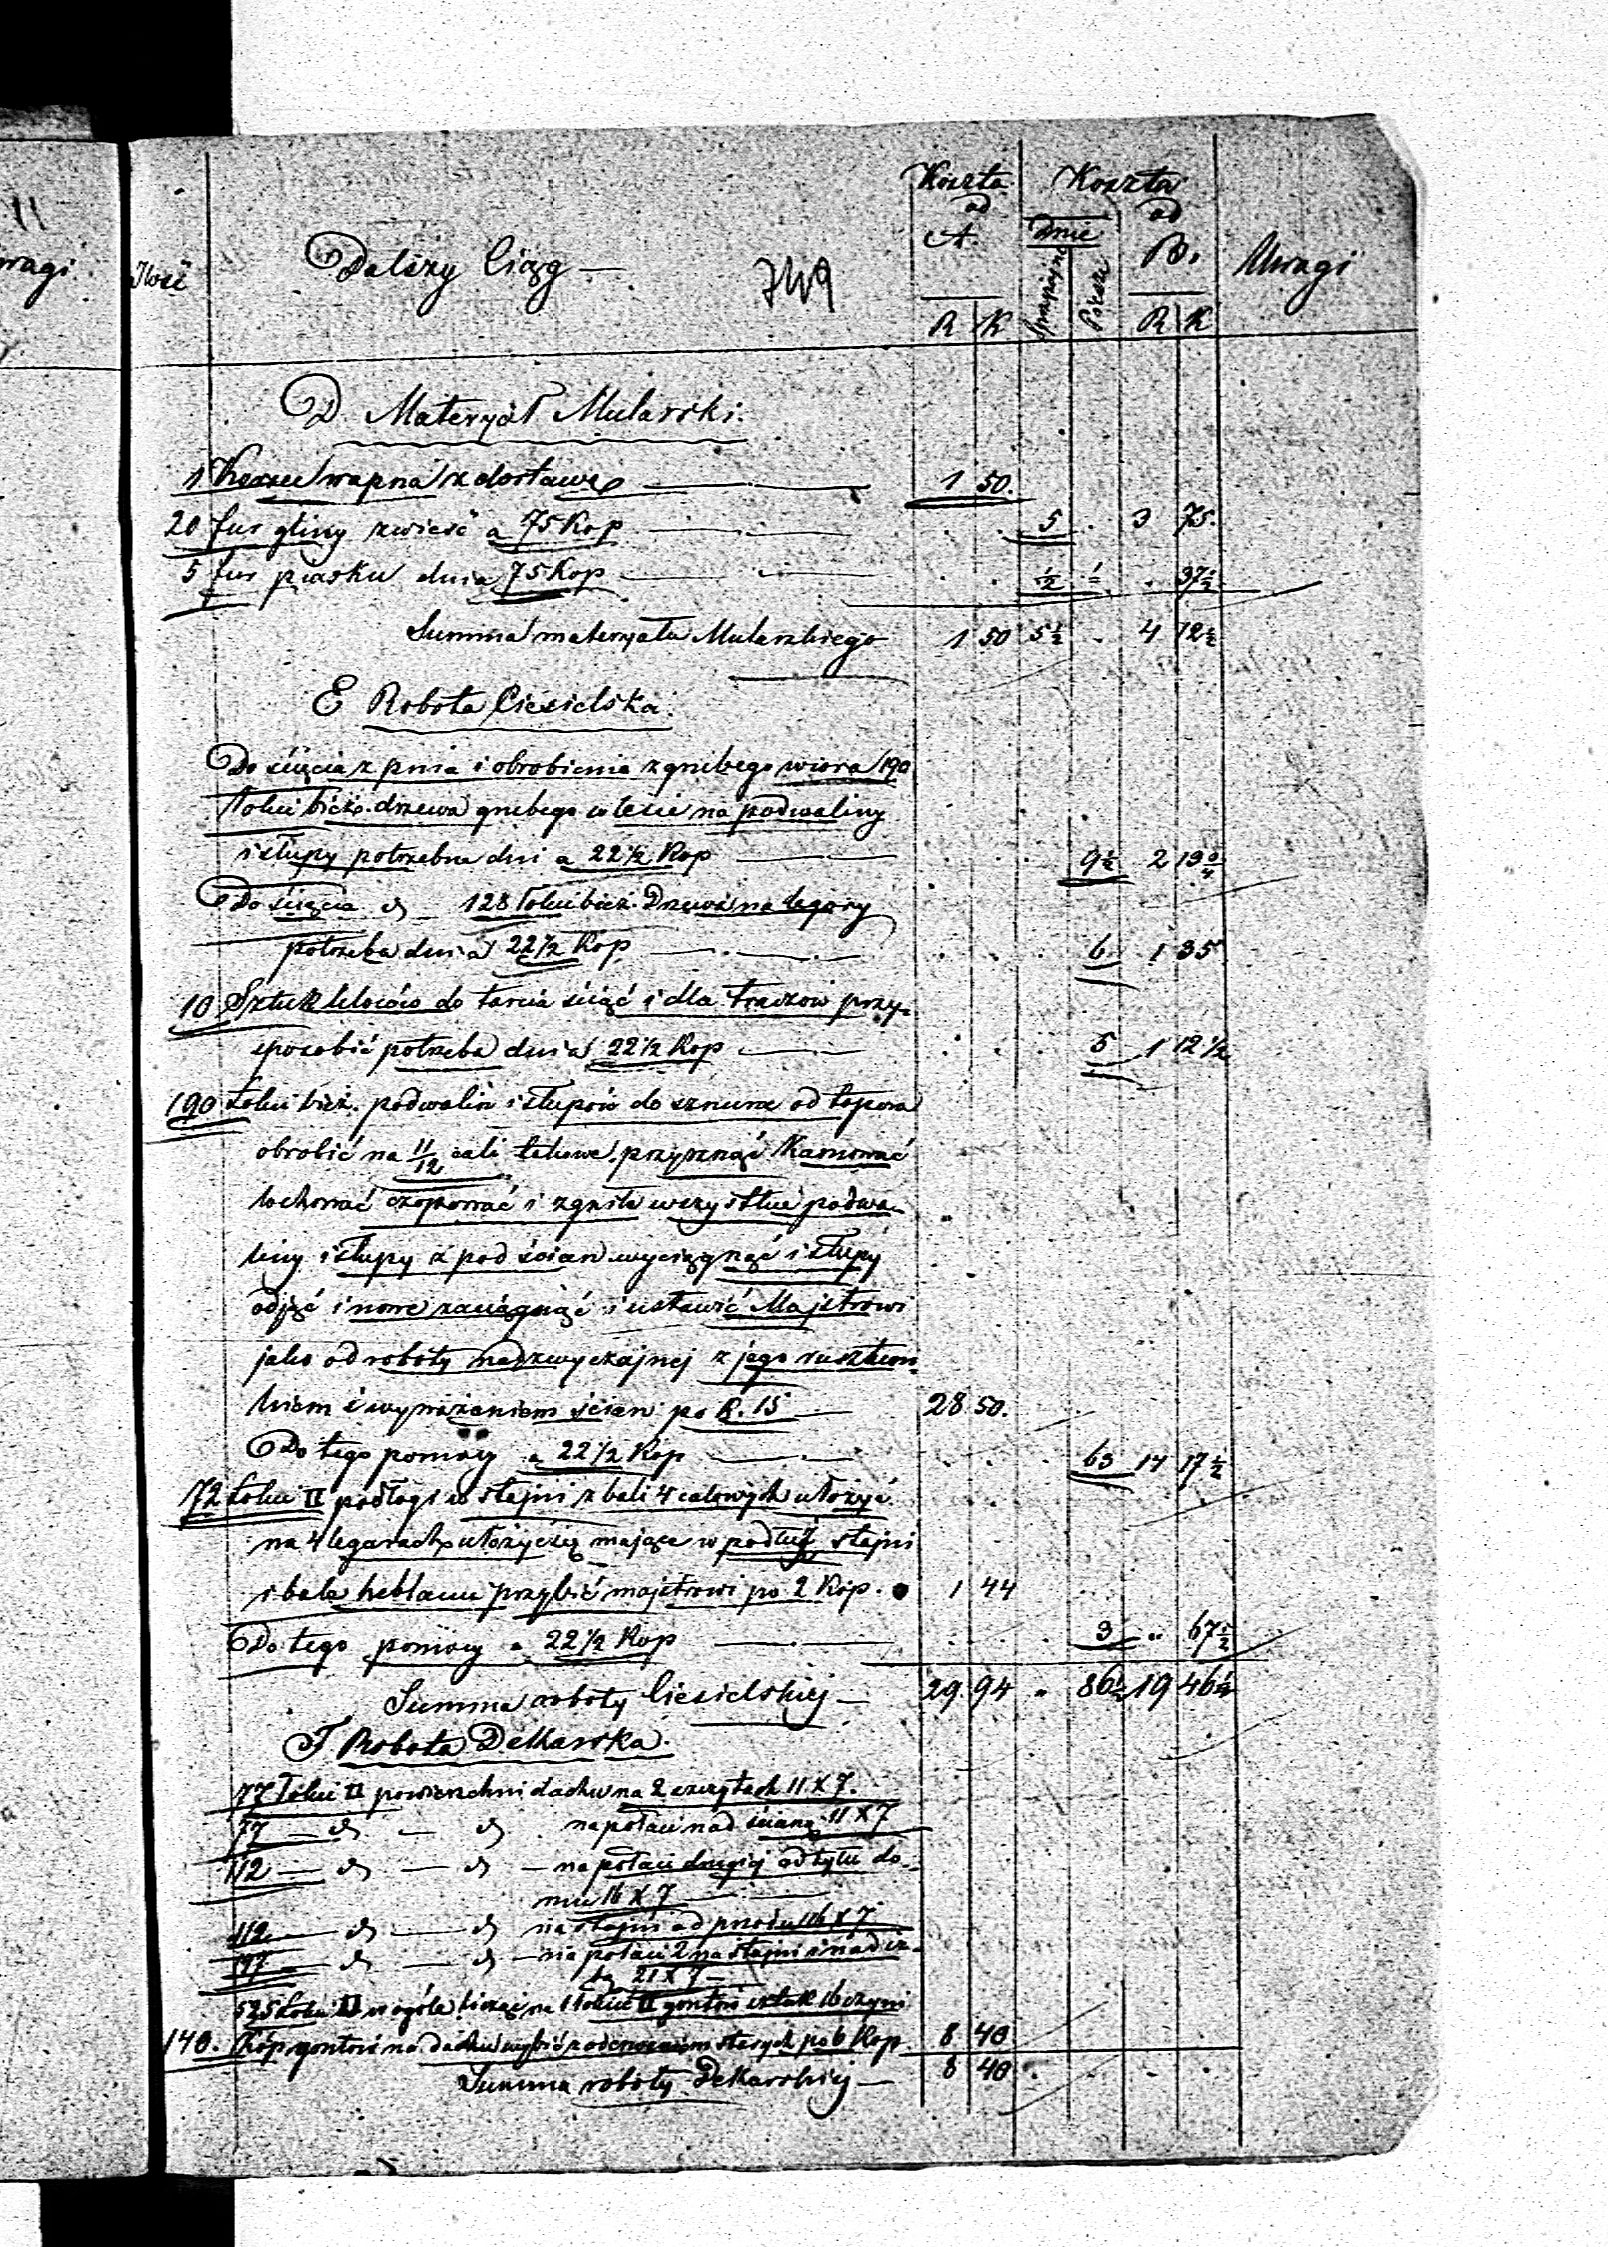 Ilość
Dalszy Ciąg —
749
Koszta ad A.
R K
Koszta ad B.
Dnie
Sprzężajne Piesze
R K
Uwagi
D. Materyał Mularski.
1 Korzec wapna z dostawą — 1 50.
20 fur gliny zwieść a 75 Kop — 5 . 3 75.
5 fur piasku dnia 75 Kop — ½ . 37½
Summa materyału Mularskiego 1 50 5½ . 4 12½
E Robota Ciesielska.
Do ścięcia z pnia i obrobienia z grubego wióra 190
łokci bież. drzewa grubego w lesie na podwaliny
i słupy potrzebne dni a 22½ Kop — 9½ 2 13¾
Do ścięcia d 128 łokci bież. Drzewa na legary
potrzeba dni a 22½ Kop — 6. 1 35.
10 Sztuk kloców do tarcia ściąć i dla traczów przy-
sposobić potrzeba dni a 22½ Kop — 5 1 12½
190 Łokci bież. podwalin i słupów do sznura od topora
obrobić na 11/12 cali przyrznąć
czopować i zgniłe wszystkie podwa-
liny i słupy z pod ścian wyciągnąć i słupy
odjąć i nowe zaciągnąć i ustawić Majstrowi
jako od roboty nadzwyczajnej z jego
i wyważaniem ścian po R. 15 — 28 50.
Do tego pomocy a 22½ Kop — 63 14 17½
72 Łokci □ podłogi w stajni z bali 4 calowych ułożyć
na 4 legarach ułożyć się mające w podłuż stajni
i bale heblami przybić majstrowi po 2 Kop. 1 44
Do tego pomocy a 22½ Kop — 3 " 67½
Summa roboty Ciesielskiej — 29 94 " 86½ 19 46¼
F Robota Dekarska.
77 Łokci □ powierzchni dachu na 2 szczytach 11 X 7.
77 — d — d na połaci nad ścianą 11 X 7
112 — d — d — na połaci drugiej od tyłu do-
mu 16 X 7
112 — d — d na stajni od przodu 16 X 7
147 — d — d — na połaci 2 na stajni i nad
21 X 7 —
525 Łokci □ w ogóle licząc na 1 łokieć □ gontów sztuk 16 czyni
140. Kóp gontów na dachu wybić z oderwaniem starych po 6 Kop. 8 40
Summa roboty Dekarskiej — 8 40